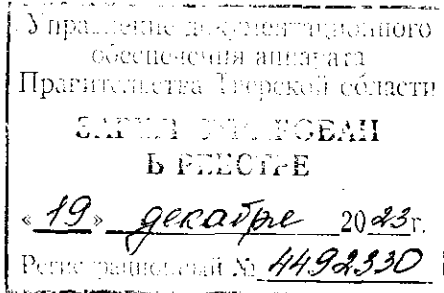 Управление документационного
обеспечения аппарата
Правительства Тверской области
ЗАРЕГИСТРИРОВАН
В РЕЕСТРЕ
«19» декабря 2023г.
Регистрационный № 4492330